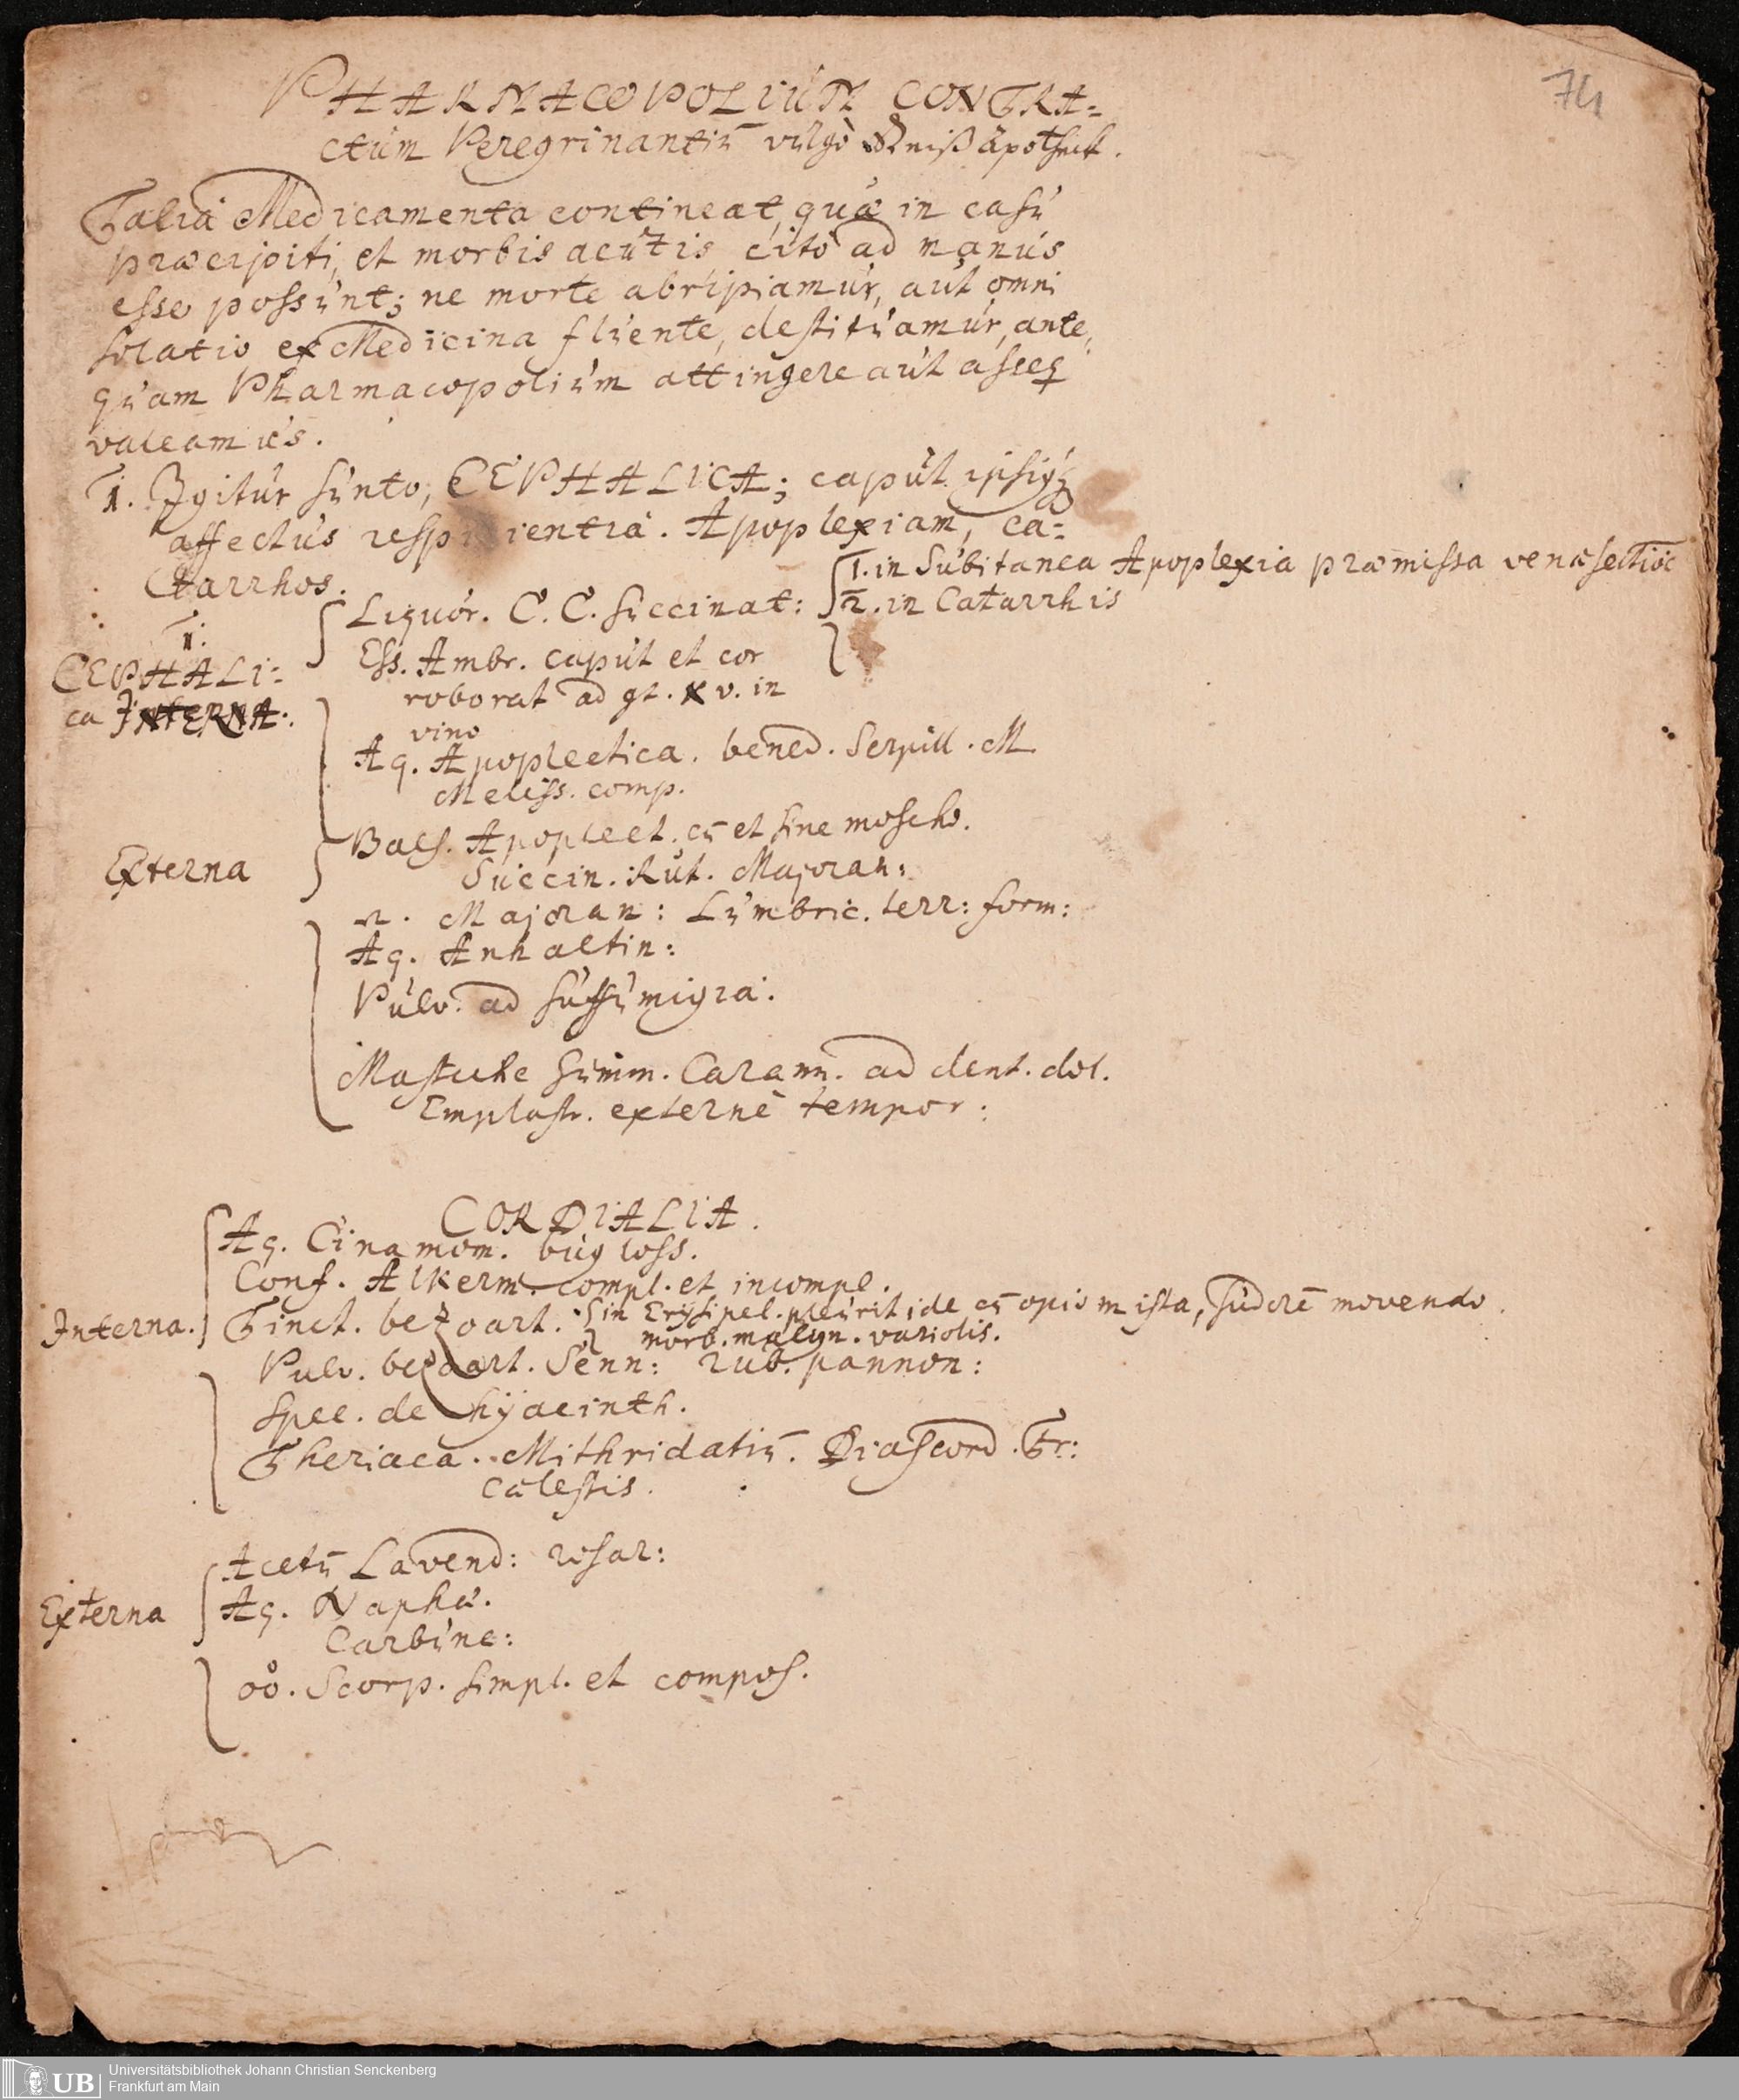 74
PHARMACOPOLIUM CONTRA=
ctum Peregrinantiū vulgò Reiß apotheck.
Talia Medicamenta contineat, quæ in casu
præcipiti, et morbis acutis cito ad manus
esse possunt; ne morte abripiamur, aut omni
solatio ex Medicina fluente, destituamur, ante,
quam Pharmacopolium attingere aut asseq
valeamus.
1. Igitur sunto, CEPHALICA; caput ipsiq
affectus respicientia. Apoplexiam, Ca=
tarrhos.
1.
CEPHALI=
ca INTERNA.
Liquor. C. C. succinat: 1. in Subitanea Apoplexia præmissa venæsectiōe
2. in Catarrhis
Ess. Ambr. caput et cor
roborat ad gt. xv. in
vino
Aq. Apoplectica. bened. Serpill. M
Meliss. comp.
Externa
Bals. Apoplect. cū et sine moscho.
Succin. Rut. Majoran:
2. Majoran: Lumbric. terr: form:
Aq. Anhaltin:
Pulv. ad suffumigia.
Mastiche Gumm. Carann. ad dent. dol.
Emplastr. externè tempor:
CORDIALIA.
Interna.
Aq. Cinamom. bugloss.
Conf. Alkerm. compl. et incompl.
Tinct. bezoart. in Erysipel. pleuritide cū opio mista, sudorē movendo.
morb. malign. variolis.
Pulv. bezoart. Senn: rub. pannon:
Spec. de hyacinth.
Theriaca. Mithridatiū. Diascord. Tr:
cælestis.
Externa
Acetū Lavend: rosar:
Aq. Naphæ.
Carbunc:
oo. Scorp. simpl. et compos.
UB Universitätsbibliothek Johann Christian Senckenberg
Frankfurt am Main